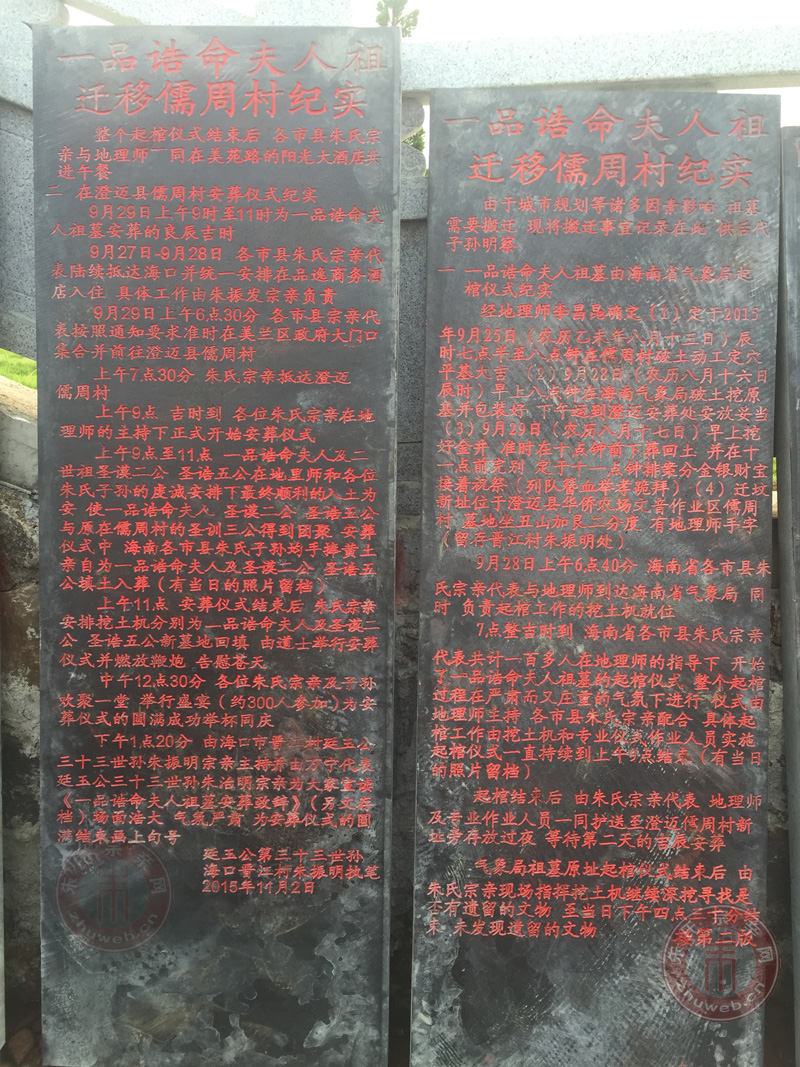 一品诰命夫人祖
迁移儒周村纪实
由于城市规划等诸多因素影响 祖墓
需要搬迁 现将搬迁事宜记录在此 供后代
子孙明察
一 一品诰命夫人祖墓由海南省气象局起
棺仪式纪实
经地理师李昌昆确定（1）定于2015
年9月25日（农历乙未年八月十三日）辰
时七点半至八点钟在儒周村破土动工定穴
平基大吉 （2）9月28日（农历八月十六日
辰时）早上八点钟在海南气象局破土挖原
墓并包装好 下午运到澄迈安葬处安放妥当
（3）9月29日（农历八月十七日）早上挖
好金井 准时在十点钟前下葬回土 并在十
一点前完别 定于十一点钟排棠分金银财宝
接着祝祭（列队簪血举孝跪拜）（4）迁坟
新址位于澄迈县华侨农场文音作业区儒周
村 墓地坐丑山加艮二分度 有地理师手字
（留存晋江村朱振明处）
9月28日上午6点40分 海南省各市县朱
氏宗亲代表与地理师到达海南省气象局 同
时 负责起棺工作的挖土机就位
7点整吉时到 海南省各市县朱氏宗亲
代表共计一百多人在地理师的指导下 开始
了一品诰命夫人祖墓的起棺仪式 整个起棺
过程在严肃而又庄重的气氛下进行 仪式由
地理师主持 各市县朱氏宗亲配合 具体起
棺工作由挖土机和专业仪式作业人员实施
起棺仪式一直持续到上午9点结束（有当日
的照片留档）
起棺结束后 由朱氏宗亲代表 地理师
及专业作业人员一同护送至澄迈儒周村新
址旁存放过夜 等待第二天的吉辰安葬
气象局祖墓原址起棺仪式结束后 由
朱氏宗亲现场指挥挖土机继续深挖寻找是
否有遗留的文物 至当日下午四点三十分结
束 未发现遗留的文物
接第二版
一品诰命夫人祖
迁移儒周村纪实
整个起棺仪式结束后 各市县朱氏宗
亲与地理师一同在美苑路的阳光大酒店共
进午餐
二 在澄迈县儒周村安葬仪式纪实
9月29日上午9时至11时为一品诰命夫
人祖墓安葬的良辰吉时
9月27日-9月28日 各市县朱氏宗亲代
表陆续抵达海口并统一安排在品逸商务酒
店入住 具体工作由朱振发宗亲负责
9月29日上午6点30分 各市县宗亲代
表按照通知要求准时在美兰区政府大门口
集合并前往澄迈县儒周村
上午7点30分 朱氏宗亲抵达澄迈
儒周村
上午9点 吉时到 各位朱氏宗亲在地
理师的主持下正式开始安葬仪式
上午9点至11点 一品诰命夫人及二
世祖圣谟二公 圣诰五公在地里师和各位
朱氏子孙的虔诚安排下最终顺利的入土为
安 使一品诰命夫人 圣谟二公 圣诰五公
与原在儒周村的圣训三公得到团聚 安葬
仪式中 海南各市县朱氏子孙均手捧黄土
亲自为一品诰命夫人及圣谟二公 圣诰五
公填土入葬（有当日的照片留档）
上午11点 安葬仪式结束后 朱氏宗亲
安排挖土机分别为一品诰命夫人及圣谟二
公 圣诰五公新墓地回填 由道士举行安葬
仪式并燃放鞭炮 告慰苍天
中午12点30分 各位朱氏宗亲及子孙
欢聚一堂 举行盛宴（约300人参加）为安
葬仪式的圆满成功举杯同庆
下午1点20分 由海口市晋江村廷玉公
三十三世孙朱振明宗亲主持并由万宁代表
廷玉公三十三世孙朱治明宗亲为大家宣读
《一品诰命夫人祖墓安葬致辞》（另文存
档）场面浩大 气氛严肃 为安葬仪式的圆
满结束画上句号
廷玉公第三十三世孙
海口晋江村朱振明执笔
2015年11月2日
zhuweb.cn
zhuweb.cn